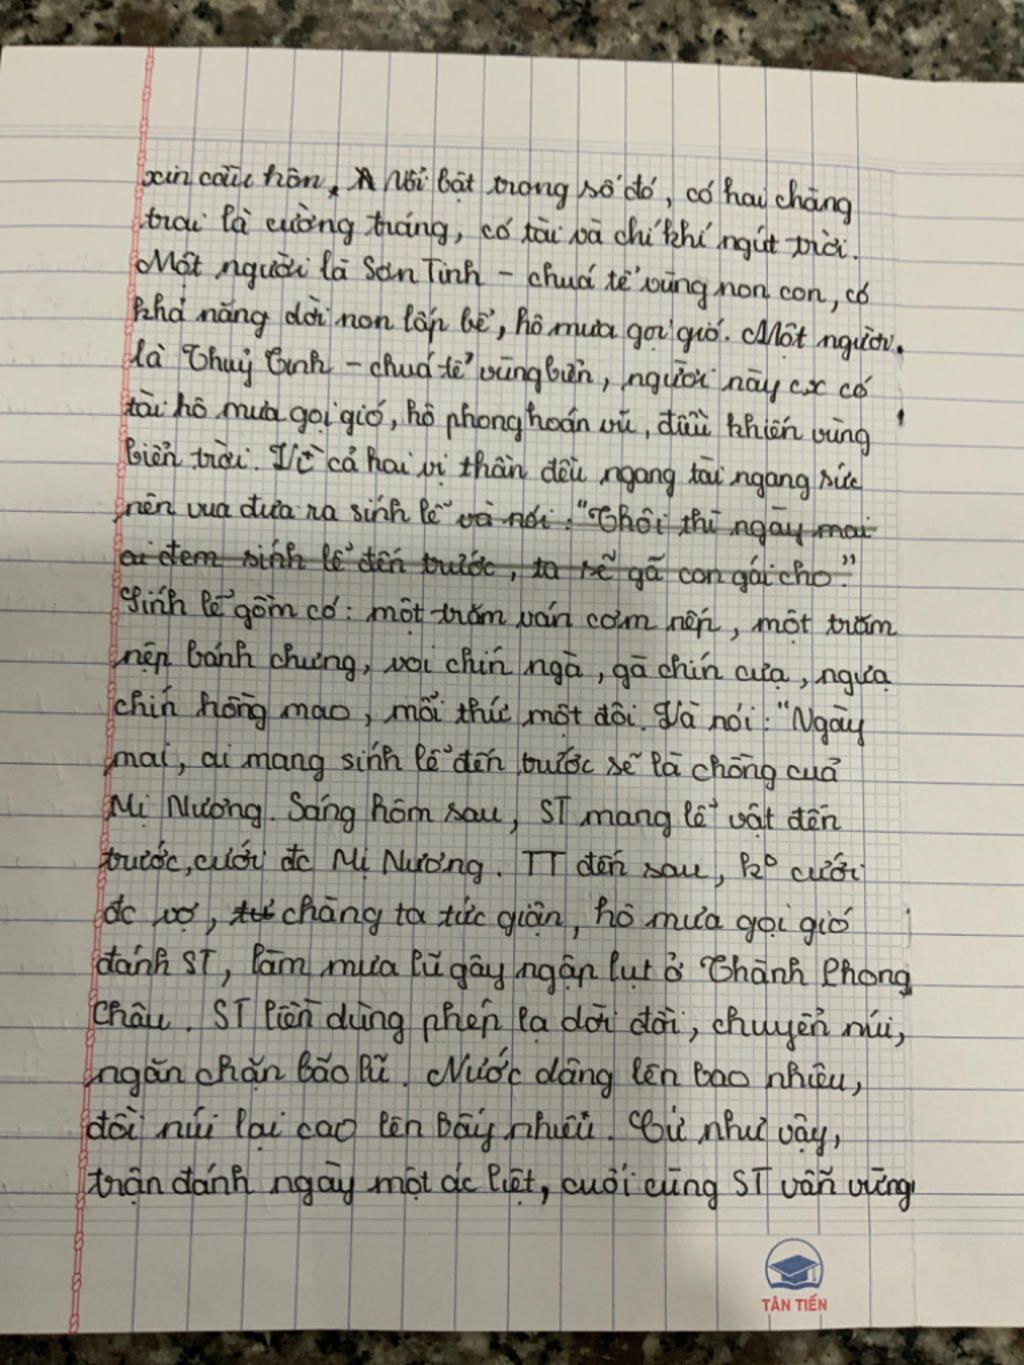 xin cầu hôn. Nổi bật trong số đó, có hai chàng
trai là cường tráng, có tài và chí khí ngút trời.
Một người là Sơn Tinh - chuá tể vùng non con, có
khả năng dời non lấp bể, hô mưa gọi gió. Một người
là Thuỷ Tinh - chuá tể vùng biển, người này cx có
tài hô mưa gọi gió, hô phong hoán vũ, điều khiển vùng
biển trời. Vì cả hai vị thần đều ngang tài ngang sức
nên vua đưa ra sính lễ và nói: "Thôi thì ngày mai
ai đem sính lễ đến trước, ta sẽ gã con gái cho."
Sính lễ gồm có: một trăm ván cơm nếp, một trăm
nệp bánh chưng, voi chín ngà, gà chín cựa, ngựa
chín hồng mao, mỗi thức một đôi. Và nói: "Ngày
mai, ai mang sính lễ đến trước sẽ là chồng cuả
Mị Nương. Sáng hôm sau, ST mang lễ vật đến
trước, cưới đc Mị Nương. TT đến sau, k° cưới
đc vợ, chàng ta tức giận, hô mưa gọi gió
đánh ST, làm mưa lũ gây ngập lụt ở Thành Phong
Châu. ST liền dùng phép lạ dời đồi, chuyển núi,
ngăn chặn bão lũ. Nước dâng lên bao nhiêu,
đồi núi lại cao lên bấy nhiêu. Cứ như vậy,
trận đánh ngày một ác liệt, cuối cùng ST vẫn vững
TÂN TIẾN